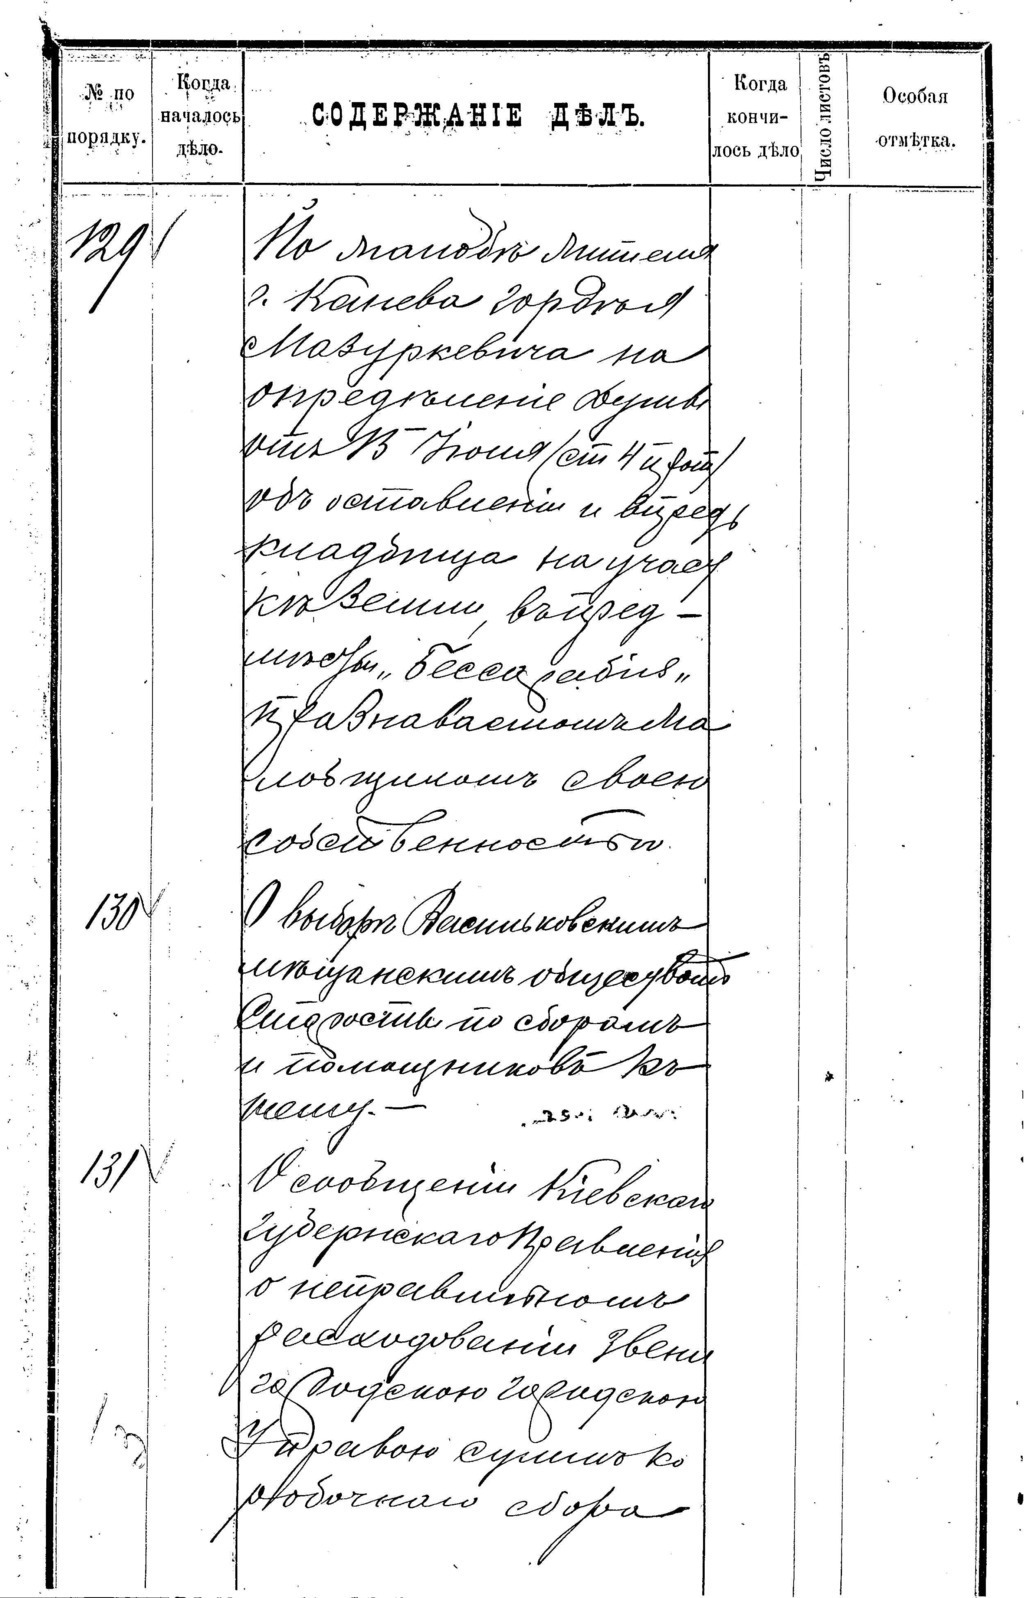 № по порядку.
Когда началось дѣло.
СОДЕРЖАНІЕ ДѢЛЪ.
Когда кончилось дѣло
Число листовъ
Особая отмѣтка.
129 По жалобѣ жителя
г. Канева Гордѣя
Мазуркевича на
опредѣленіе Думы
отъ 15 Іюня (ст 4
объ оставленіи и впредь
кладбища на участ
кѣ земли, въ пред-
мѣстьи „Бессарабія„
признаваемомъ жа
лобщикомъ своею
собственностью.
130 О выборѣ Васильковскимъ
мѣщанскимъ обществомъ
Старосты по сборамъ
и помощниковъ къ
нему.—
131 О сообщеніи Кіевскаго
Губернскаго Правленія
о неправильномъ
расходованіи Звени
городскою городскою
Управою суммъ ко
робочнаго сбора